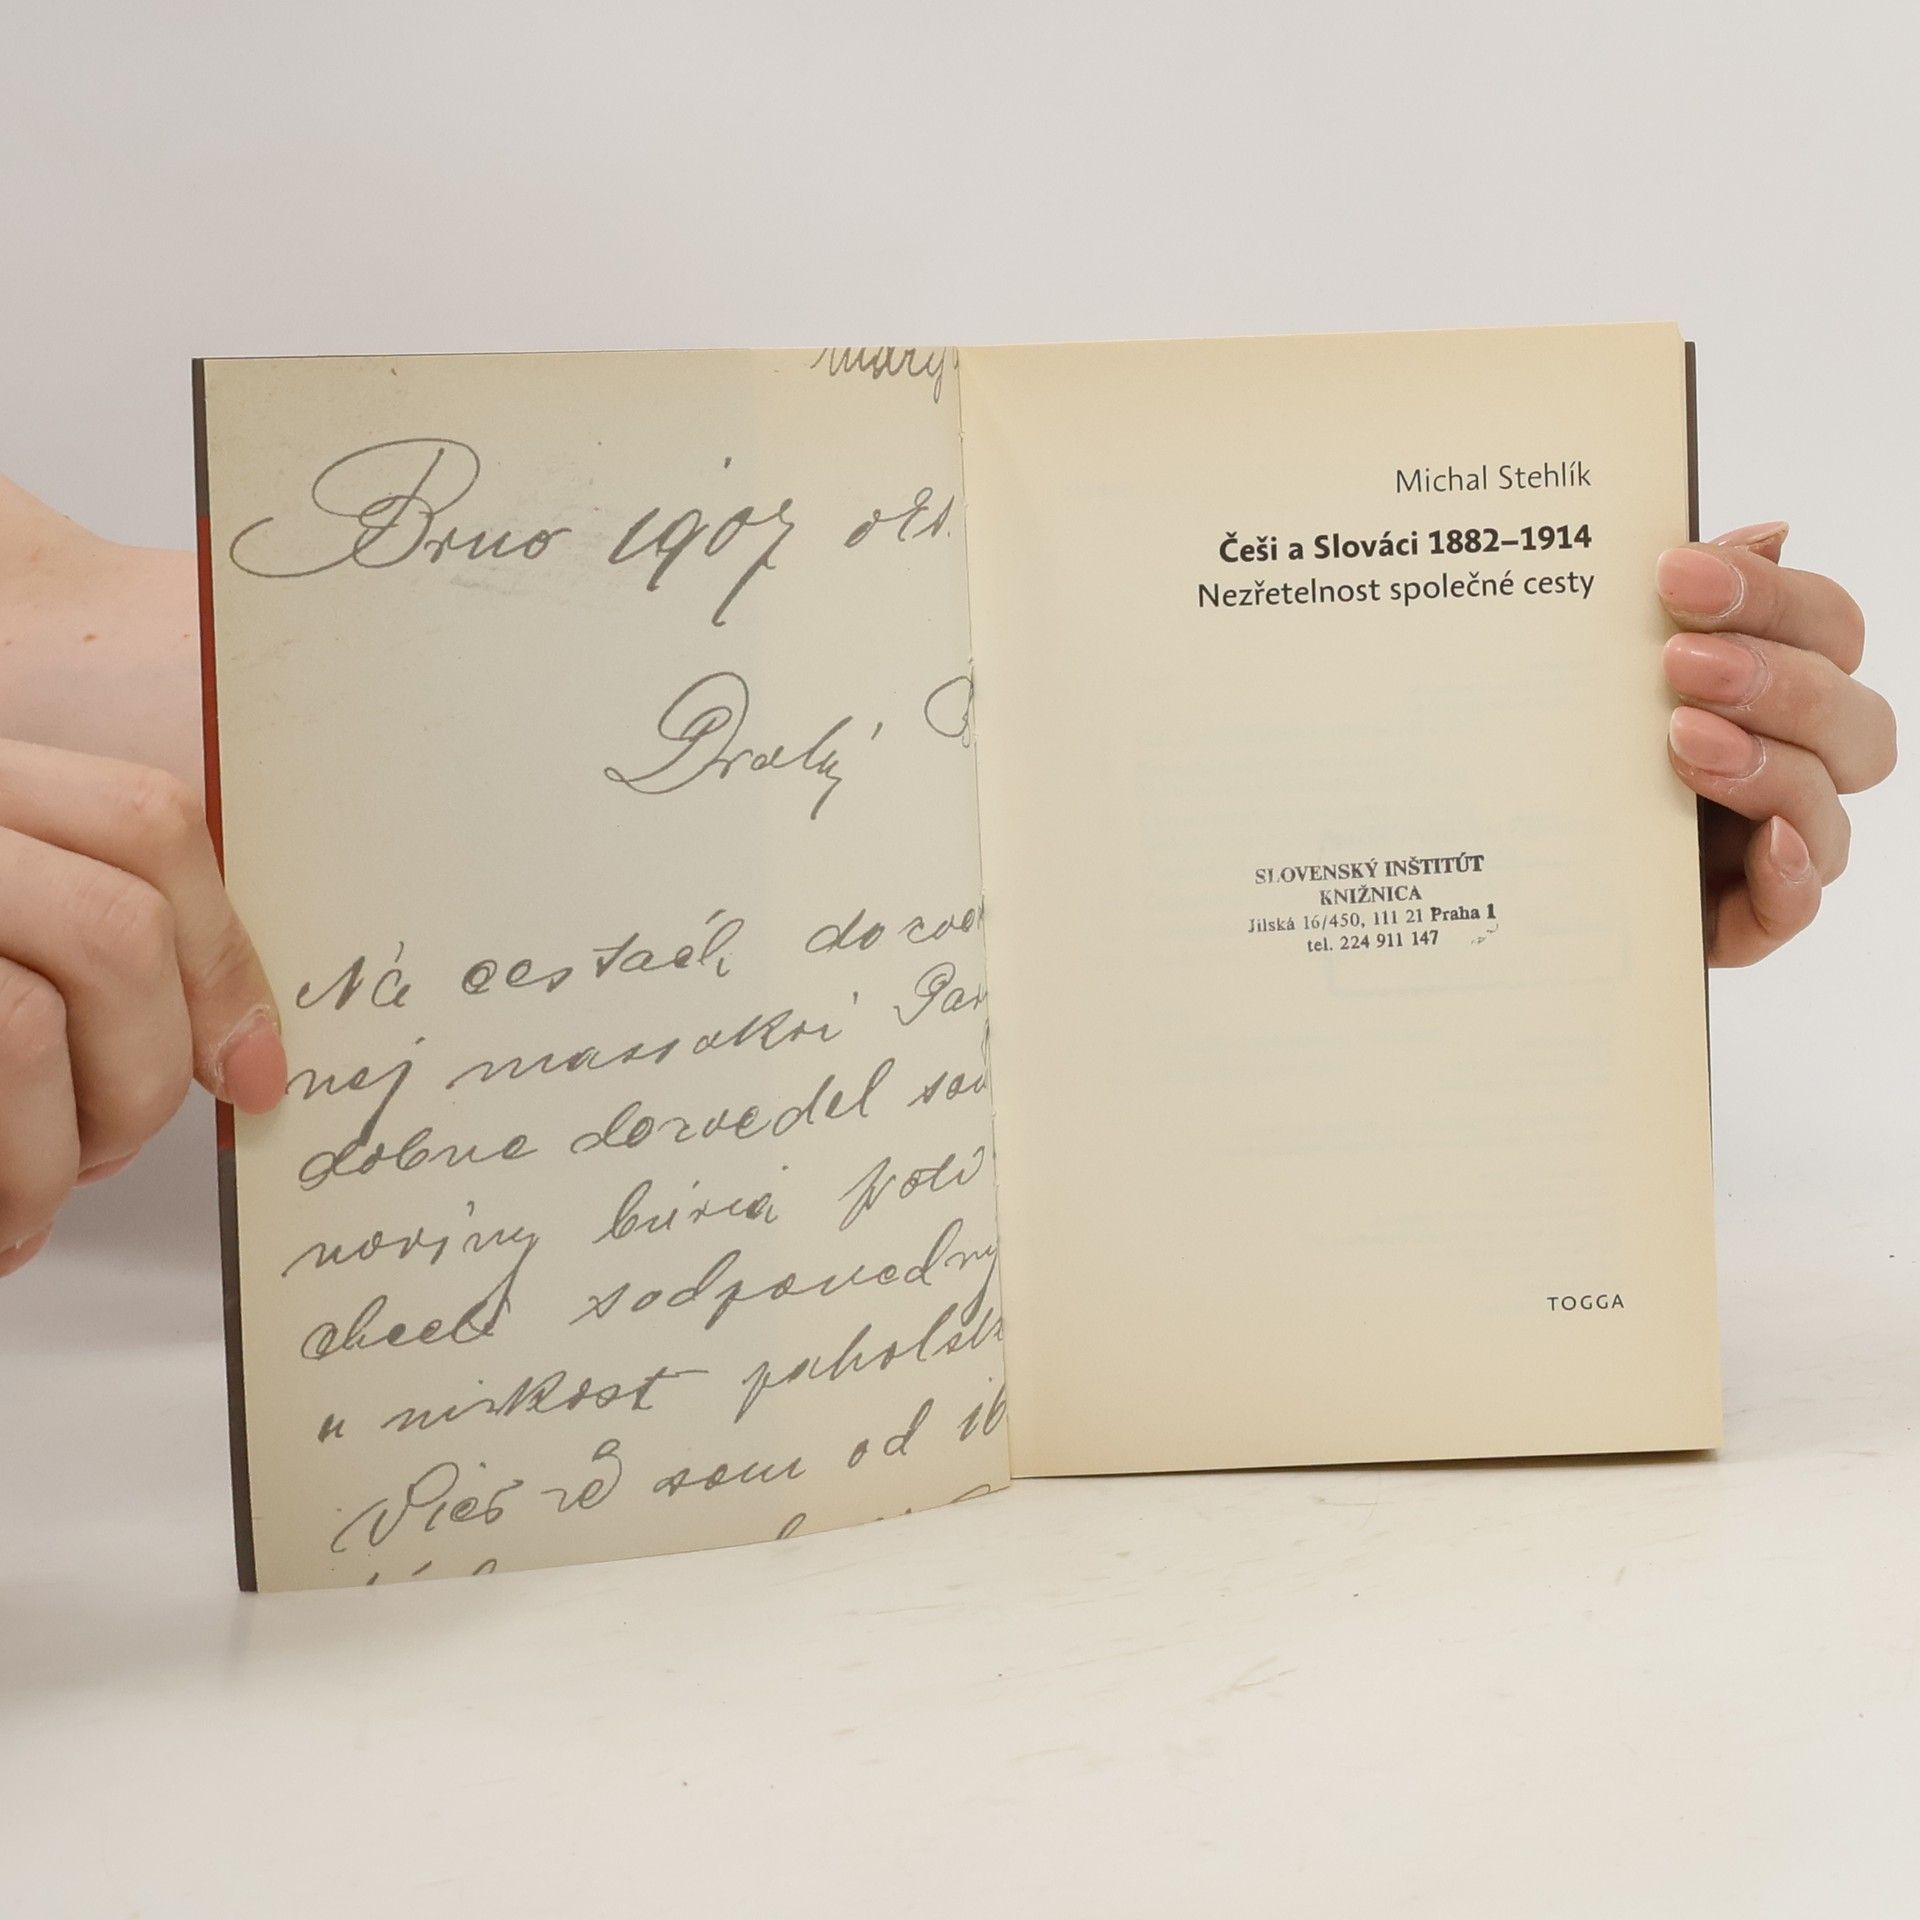 Brno 1907 okt.
Drahý
Na cestách
nej massakri
dobne dozvedel som
noviny búria proti
chceli zodpovedny
u nizkost
Vieš že som od 16
Michal Stehlík
Češi a Slováci 1882–1914
Nezřetelnost společné cesty
SLOVENSKÝ INŠTITÚT
KNIŽNICA
Jilská 16/450, 111 21 Praha 1
tel. 224 911 147
TOGGA